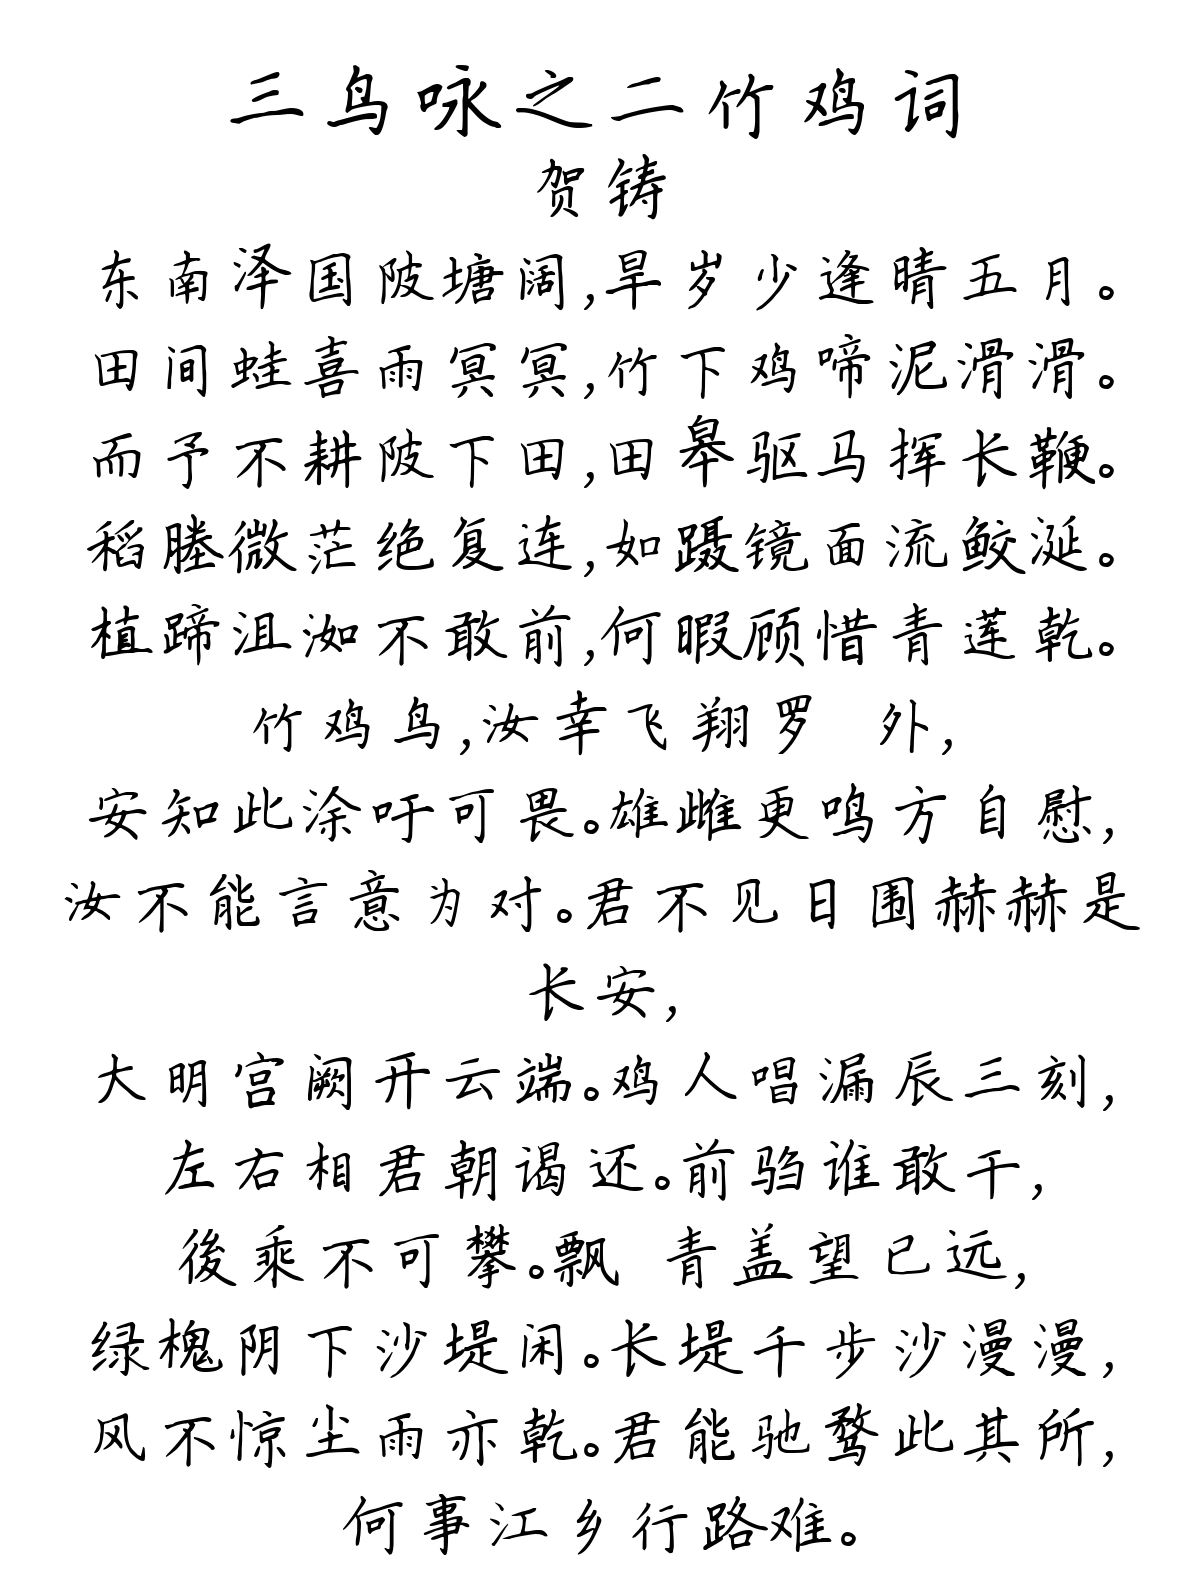 三鸟咏之二竹鸡词
贺铸
东南泽国陂塘阔,旱岁少逢晴五月。
田间蛙喜雨冥冥,竹下鸡啼泥滑滑。
而予不耕陂下田,田皋驱马挥长鞭。
稻塍微茫绝复连,如蹑镜面流鲛涎。
植蹄沮洳不敢前,何暇顾惜青莲乾。
竹鸡鸟,汝幸飞翔罗 外,
安知此涂吁可畏。雄雌更鸣方自慰,
汝不能言意为对。君不见日围赫赫是
长安,
大明宫阙开云端。鸡人唱漏辰三刻,
左右相君朝谒还。前驺谁敢干,
後乘不可攀。飘 青盖望已远,
绿槐阴下沙堤闲。长堤千步沙漫漫,
风不惊尘雨亦乾。君能驰骛此其所,
何事江乡行路难。